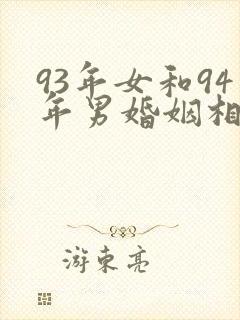 93年女和94
年男婚姻相
游东亮